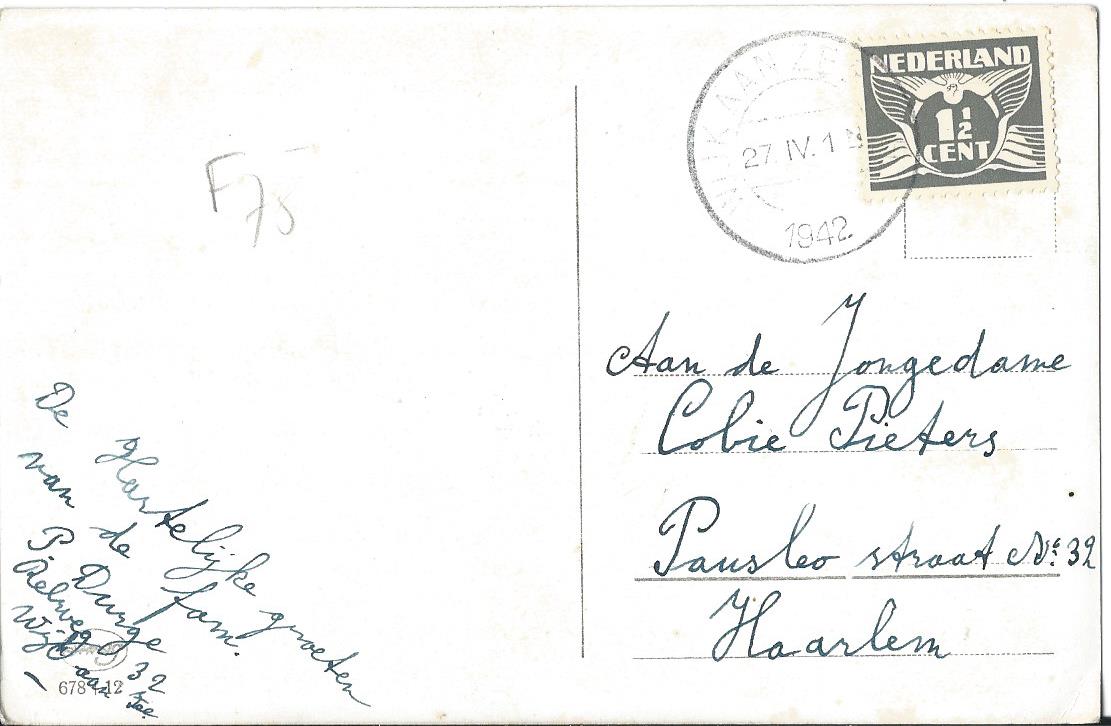 F 75
WIJK AAN ZEE
27. IV. 1
1942
NEDERLAND
1 1/2
CENT
Aan de Jongedame
Cobie Pieters
Pausleo straat No: 32
Haarlem
De Hartelijke groeten
van de fam.
P. Durge
Relweg 32
Wijk aan Zee
678-12